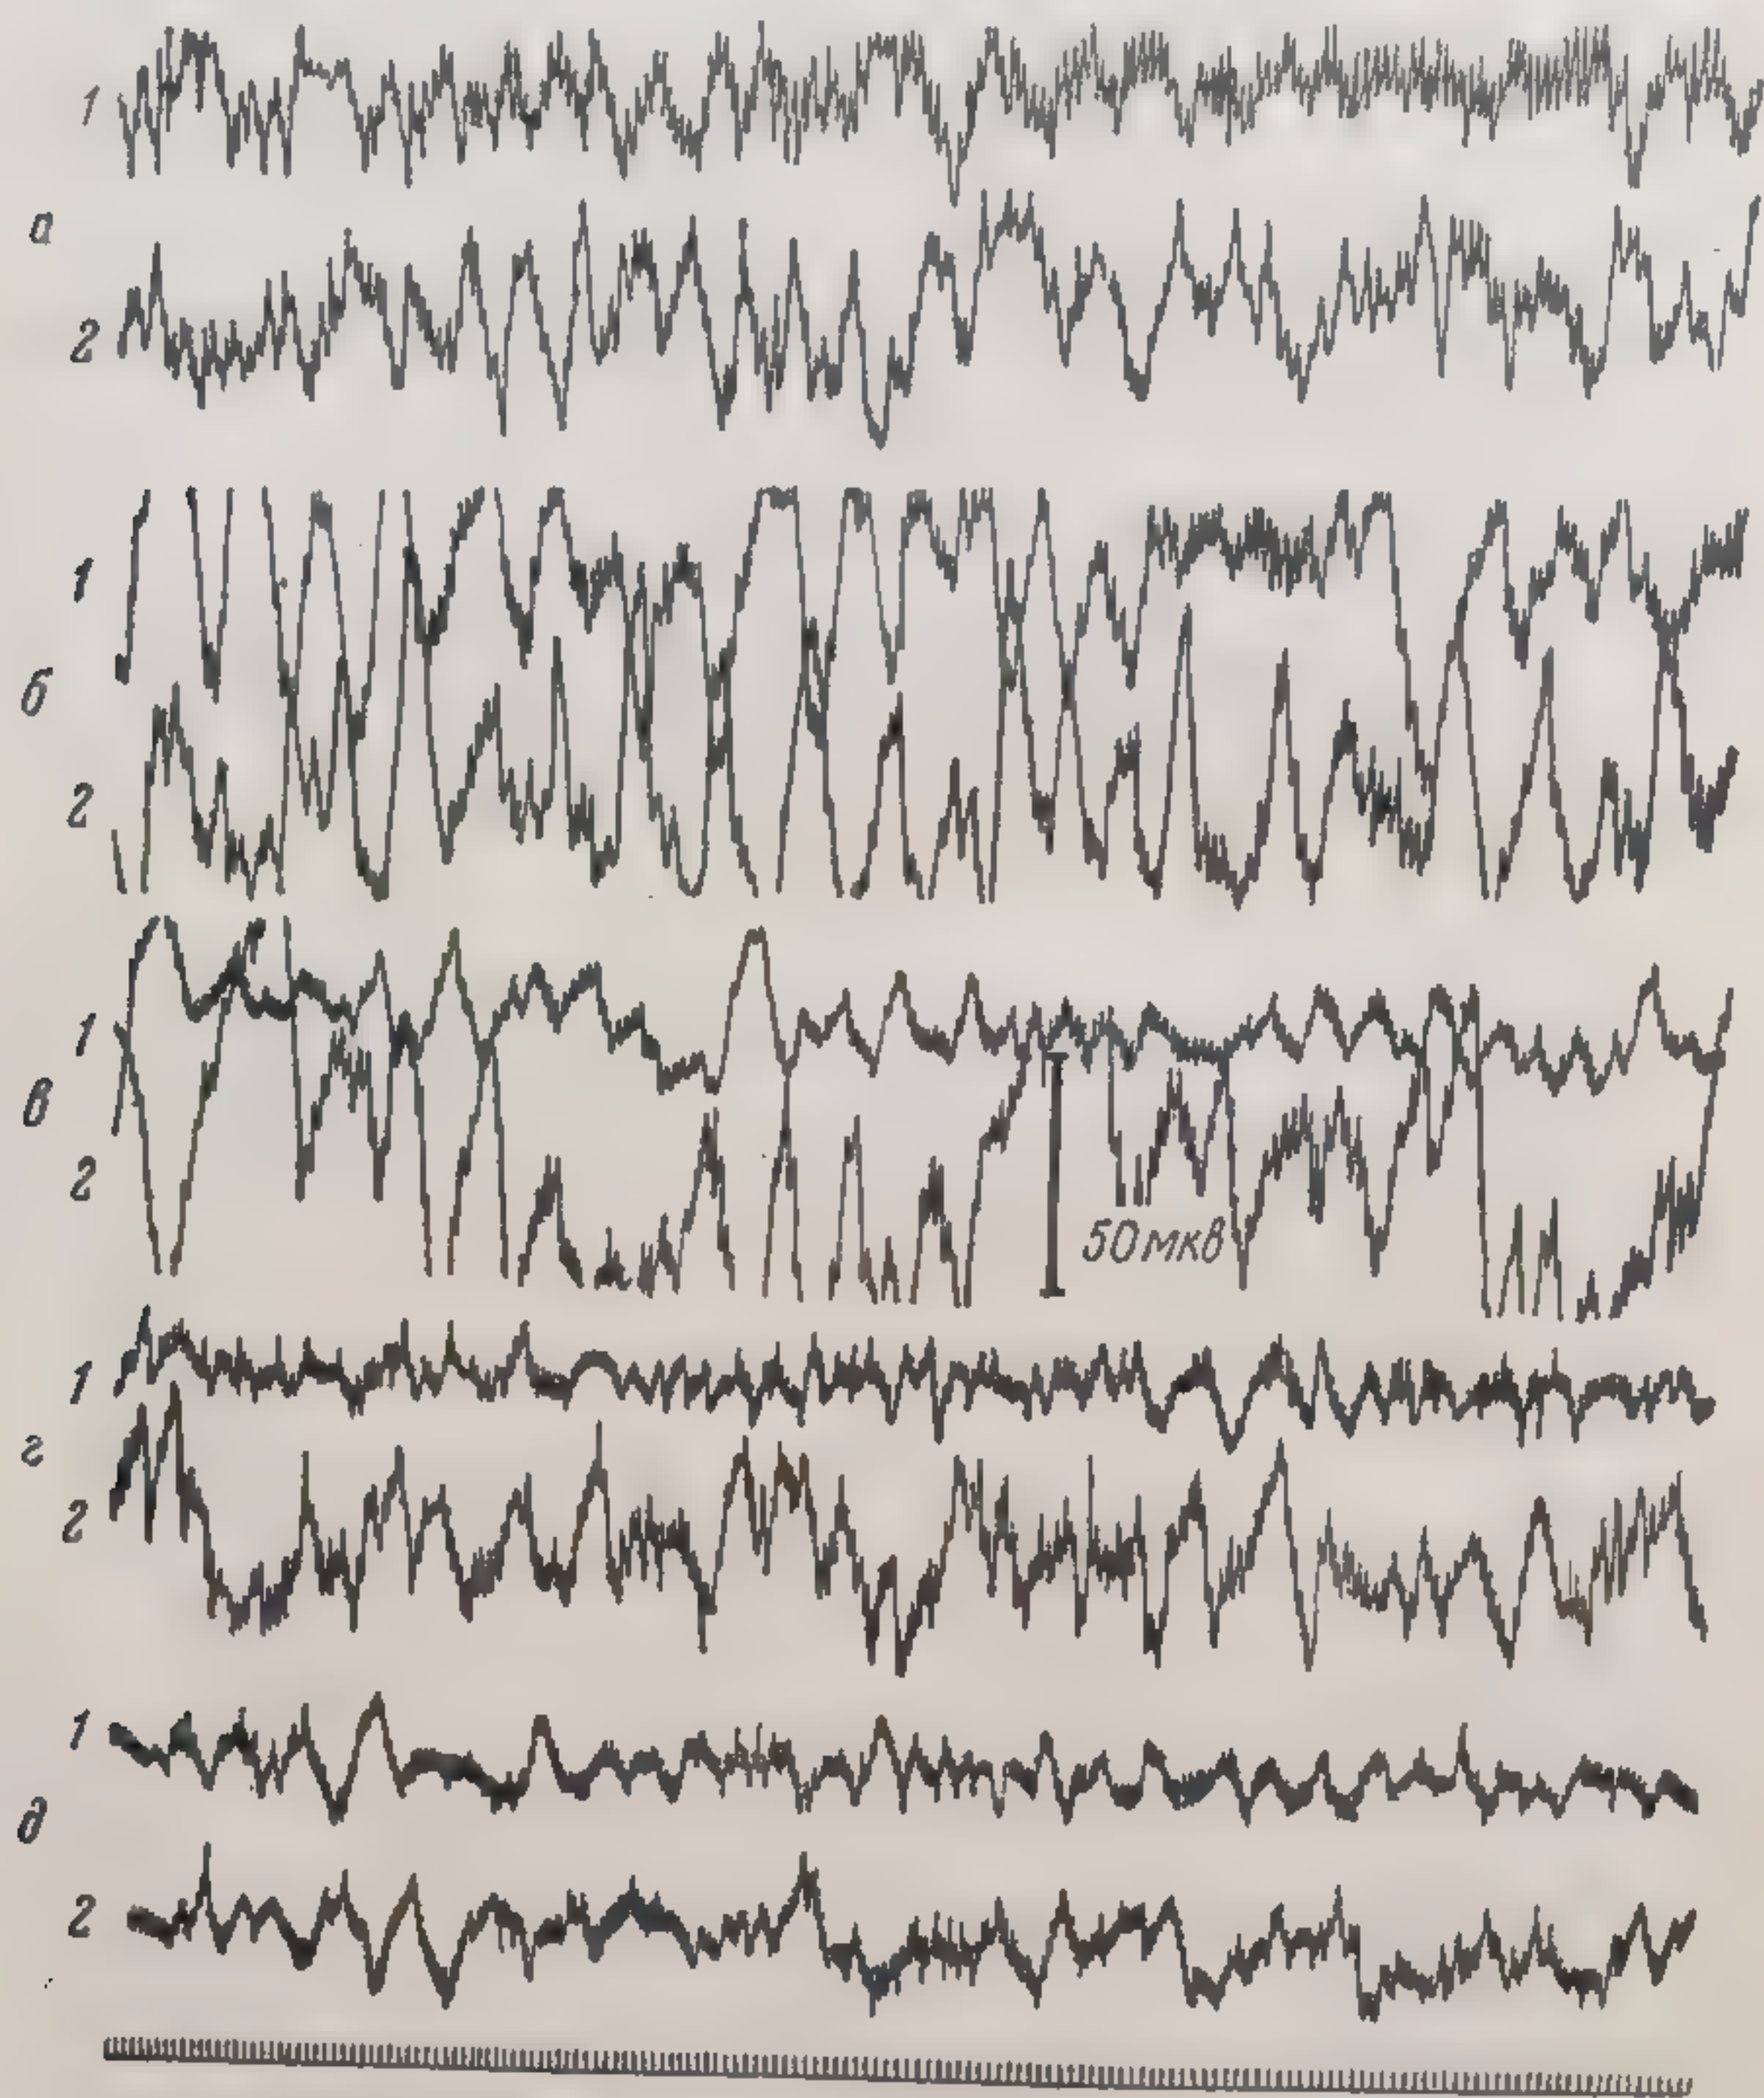 1
а
2
1
б
2
1
в
2
50 мкв
1
г
2
1
д
2